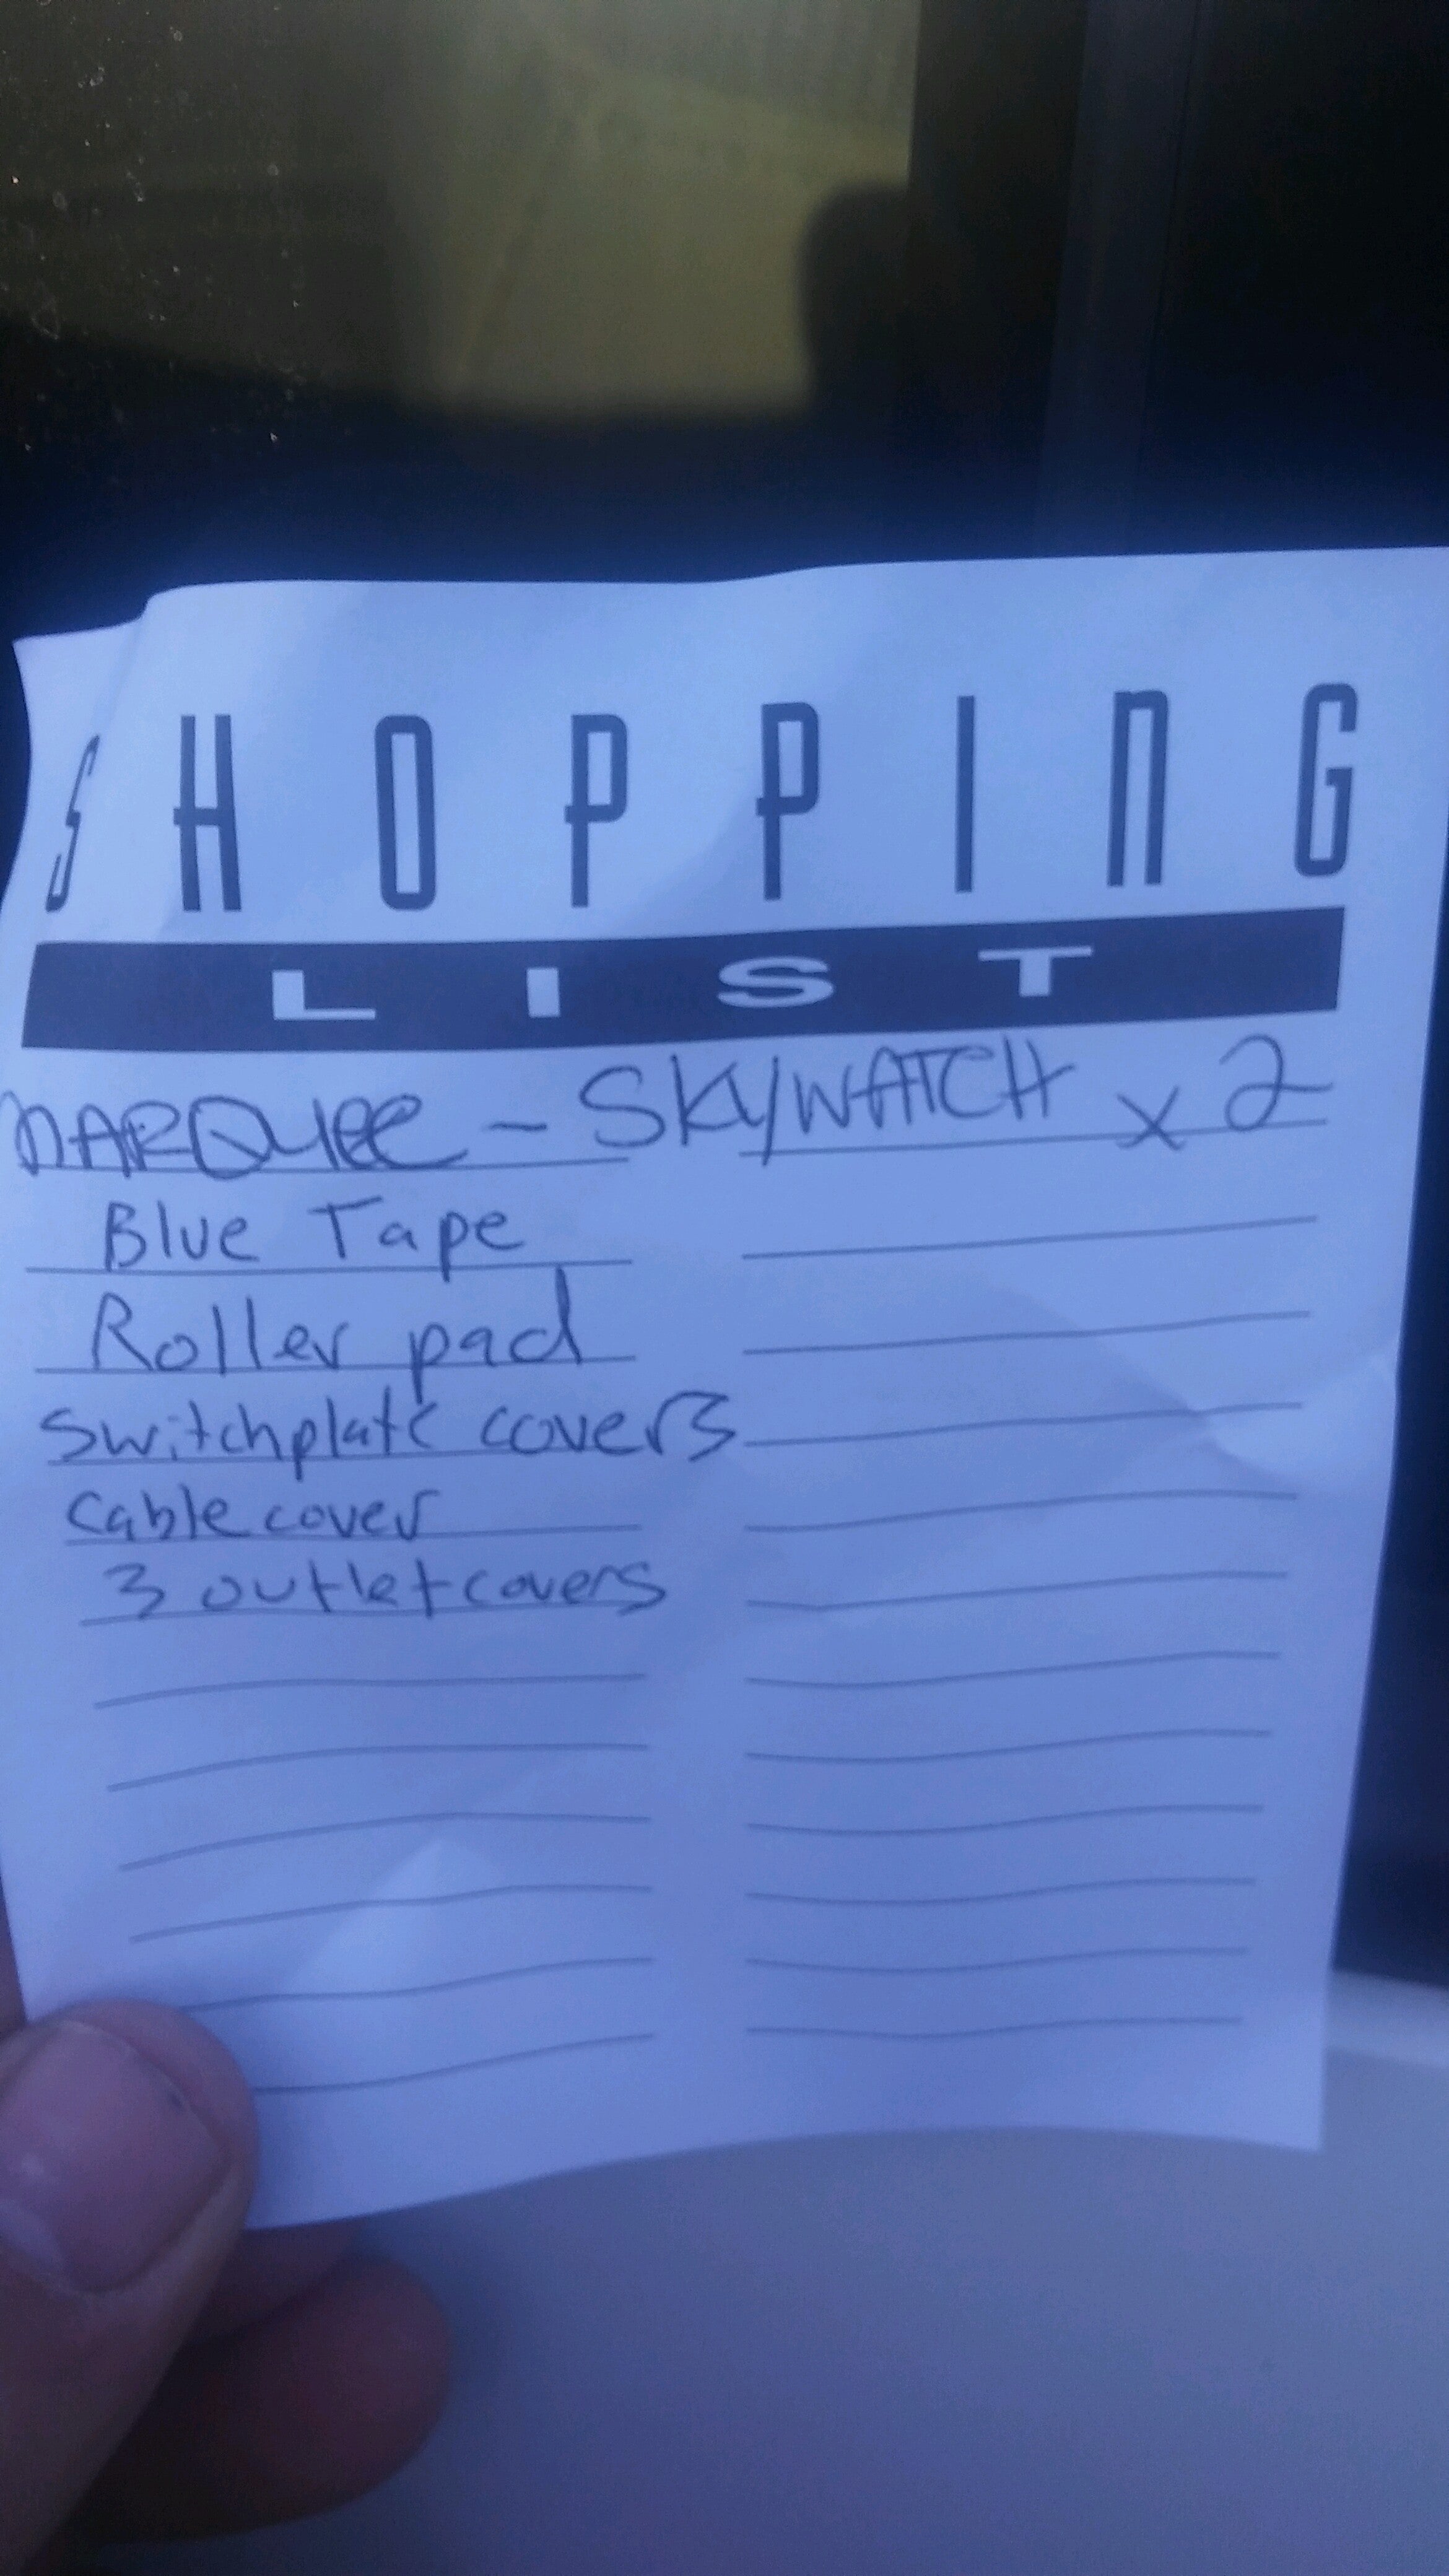 SHOPPING
LIST
MARQUEE - SKYWATCH x 2
Blue Tape
Roller pad
Switchplate covers
Cable cover
3 outlet covers